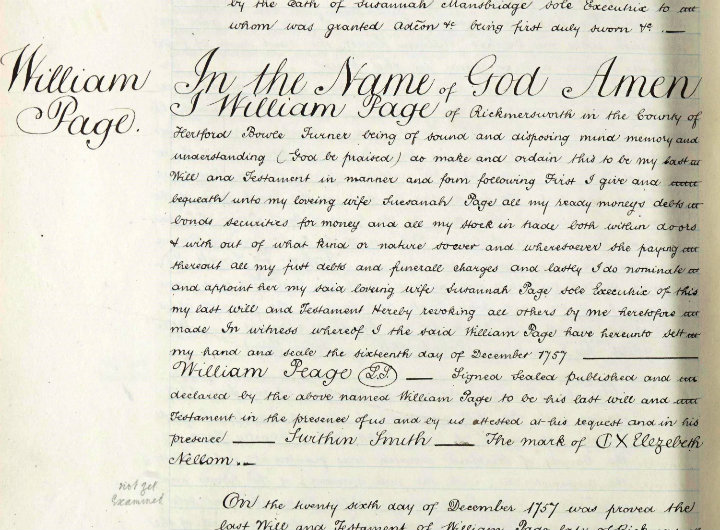 by the Oath of Susannah Mansbridge sole Executrix to
whom was granted Adcon &c being first duly sworn &c.
William
Page.
In the Name of God Amen
I William Page of Rickmersworth in the County of
Hertford Bowle Turner being of sound and disposing mind memory and
understanding (God be praised) do make and ordain this to be my Last
Will and Testament in manner and form following First I give and
bequeath unto my loveing wife Suesanah Page all my ready moneys debts
bonds securities for money and all my stock in trade both within doors
& with out of what kind or nature soever and wheresoever she paying
thereout all my just debts and funerall charges and lastly I do nominate
and appoint her my said loveing wife Susannah Page sole Executrix of this
my last will and Testament Hereby revoking all others by me heretofore
made In witness whereof I the said William Page have hereunto sett
my hand and seale the sixteenth day of December 1757
William Peage LS Signed Sealed published and
declared by the above named William Page to be his last will and
Testament in the presence of us and by us attested at his request and in his
presence Surthin Smith The mark of C X Elezebeth
Nellom.
not yet
Examined
On the twenty sixth day of December 1757 was proved the
last Will and Testament of William Page late of